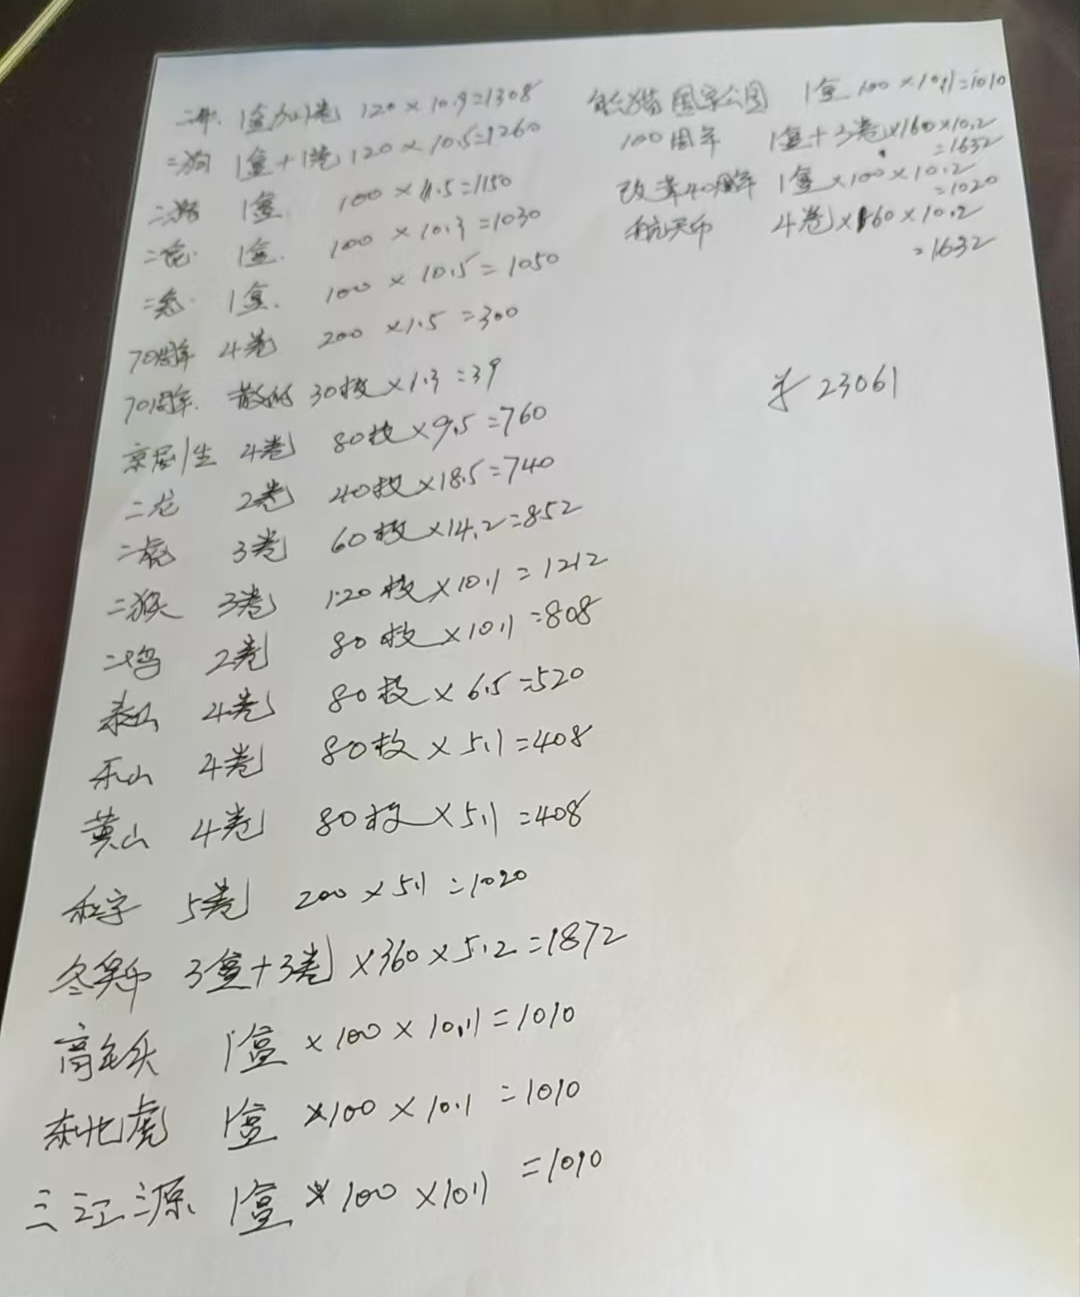 二牛 1盒加1卷 120×10.9=1308
二狗 1盒+1卷 120×10.5=1260
二猪 1盒 100×11.5=1150
1盒 100×10.3=1030
二兔 1盒 100×10.5=1050
70周年 4卷 200×1.5=300
70周年 散的 30枚×1.3=39
京剧生 4卷 80枚×9.5=760
二龙 2卷 40枚×18.5=740
二虎 3卷 60枚×14.2=852
二猴 3卷 120枚×10.1=1212
二鸡 2卷 80枚×10.1=808
泰山 4卷 80枚×6.5=520
4卷 80枚×5.1=408
黄山 4卷 80枚×5.1=408
和字 5卷 200×5.1=1020
冬奥币 3盒+3卷×360×5.2=1872
高铁 1盒×100×10.1=1010
东北虎 1盒×100×10.1=1010
三江源 1盒×100×10.1=1010
熊猫国家公园 1盒 100×10.1=1010
100周年 1盒+3卷×160×10.2
=1632
改革40周年 1盒×100×10.2
=1020
航天币 4卷×160×10.2
=1632
¥23061